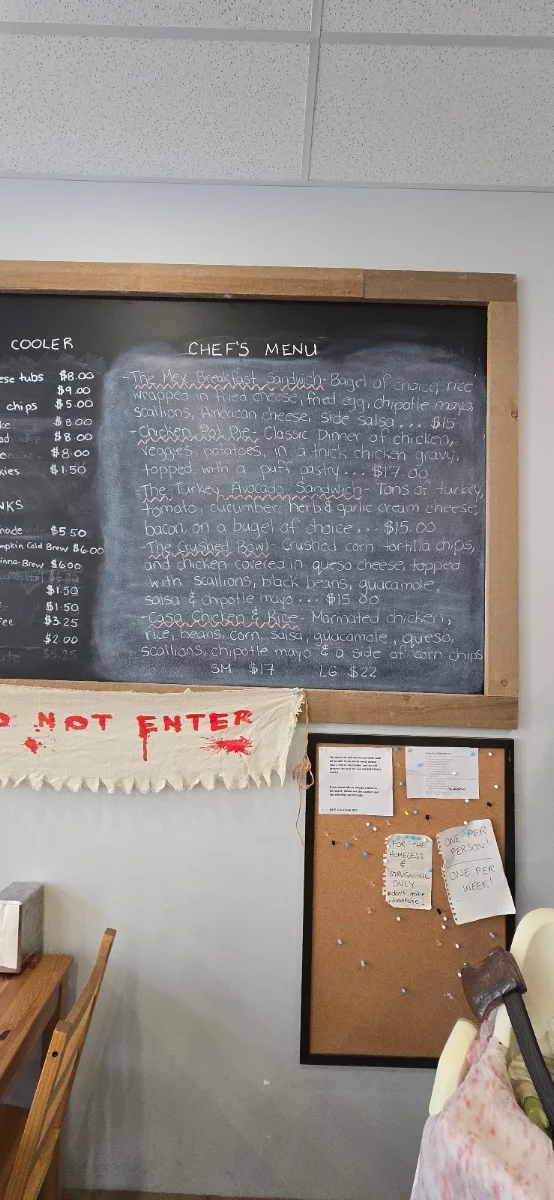 COOLER
ese tubs $8.00
$9.00
chips $5.00
ke $8.00
ad $8.00
$8.00
kies $1.50
NKS
nade $5.50
mpkin Cold Brew $6.00
inna-Brew $6.00
$1.50
$1.50
fee $3.25
$2.00
$5.25
CHEF'S MENU
-The Mex Breakfast Sandwich- Bagel of choice, rice
wrapped in fried cheese, fried egg, chipotle mayo,
scallions, American cheese, side salsa... $15
-Chicken Pot Pie- Classic Dinner of chicken,
veggies, potatoes, in a thick chicken gravy,
topped with a puff pastry... $17.00
-The Turkey Avocado Sandwich- Tons of turkey,
tomato, cucumber, herb & garlic cream cheese,
bacon, on a bagel of choice... $15.00
-The Crushed Bowl- Crushed corn tortilla chips,
and chicken covered in queso cheese, topped
with scallions, black beans, guacamole,
salsa & chipotle mayo... $15.00
-Casa Chicken & Rice- Marinated chicken,
rice, beans, corn, salsa, guacamole, queso,
scallions, chipotle mayo & a side of corn chips
SM $17 LG $22
O NOT ENTER
FOR THE
HOMELESS
&
STRUGGLING
ONLY
ONE PER
PERSON!
ONE PER
WEEK!